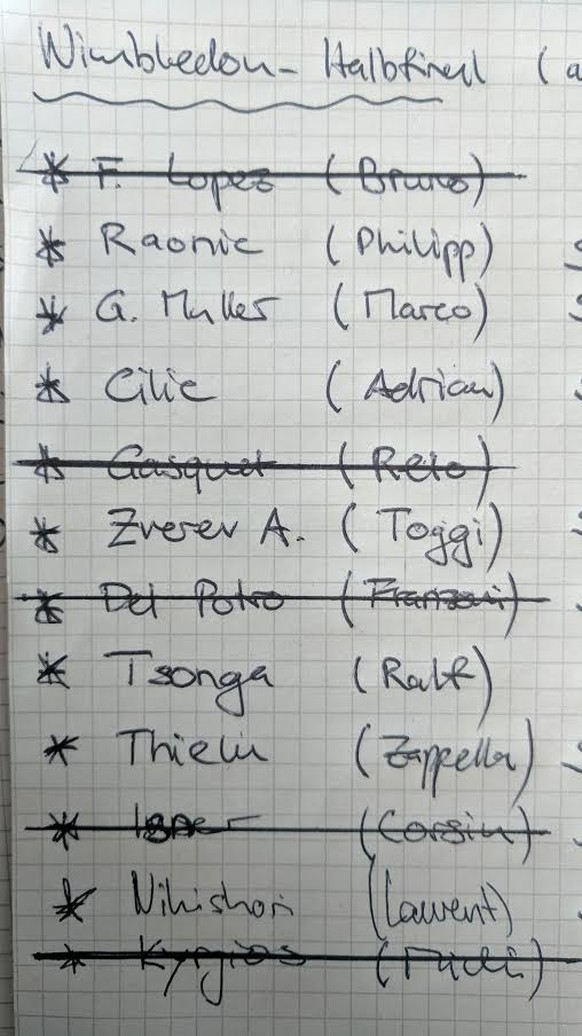 Wimbledon - Halbfinal (a
* F. Lopez (Bruno)
* Raonic (Philipp)
* G. Muller (Marco)
* Cilic (Adrian)
* Gasquet (Reto)
* Zverev A. (Toggi)
* Del Potro (Franzoni)
* Tsonga (Ralf)
* Thiem (Zappella)
* Isner (Corsin)
* Nikishori (Laurent)
* Kyrgios